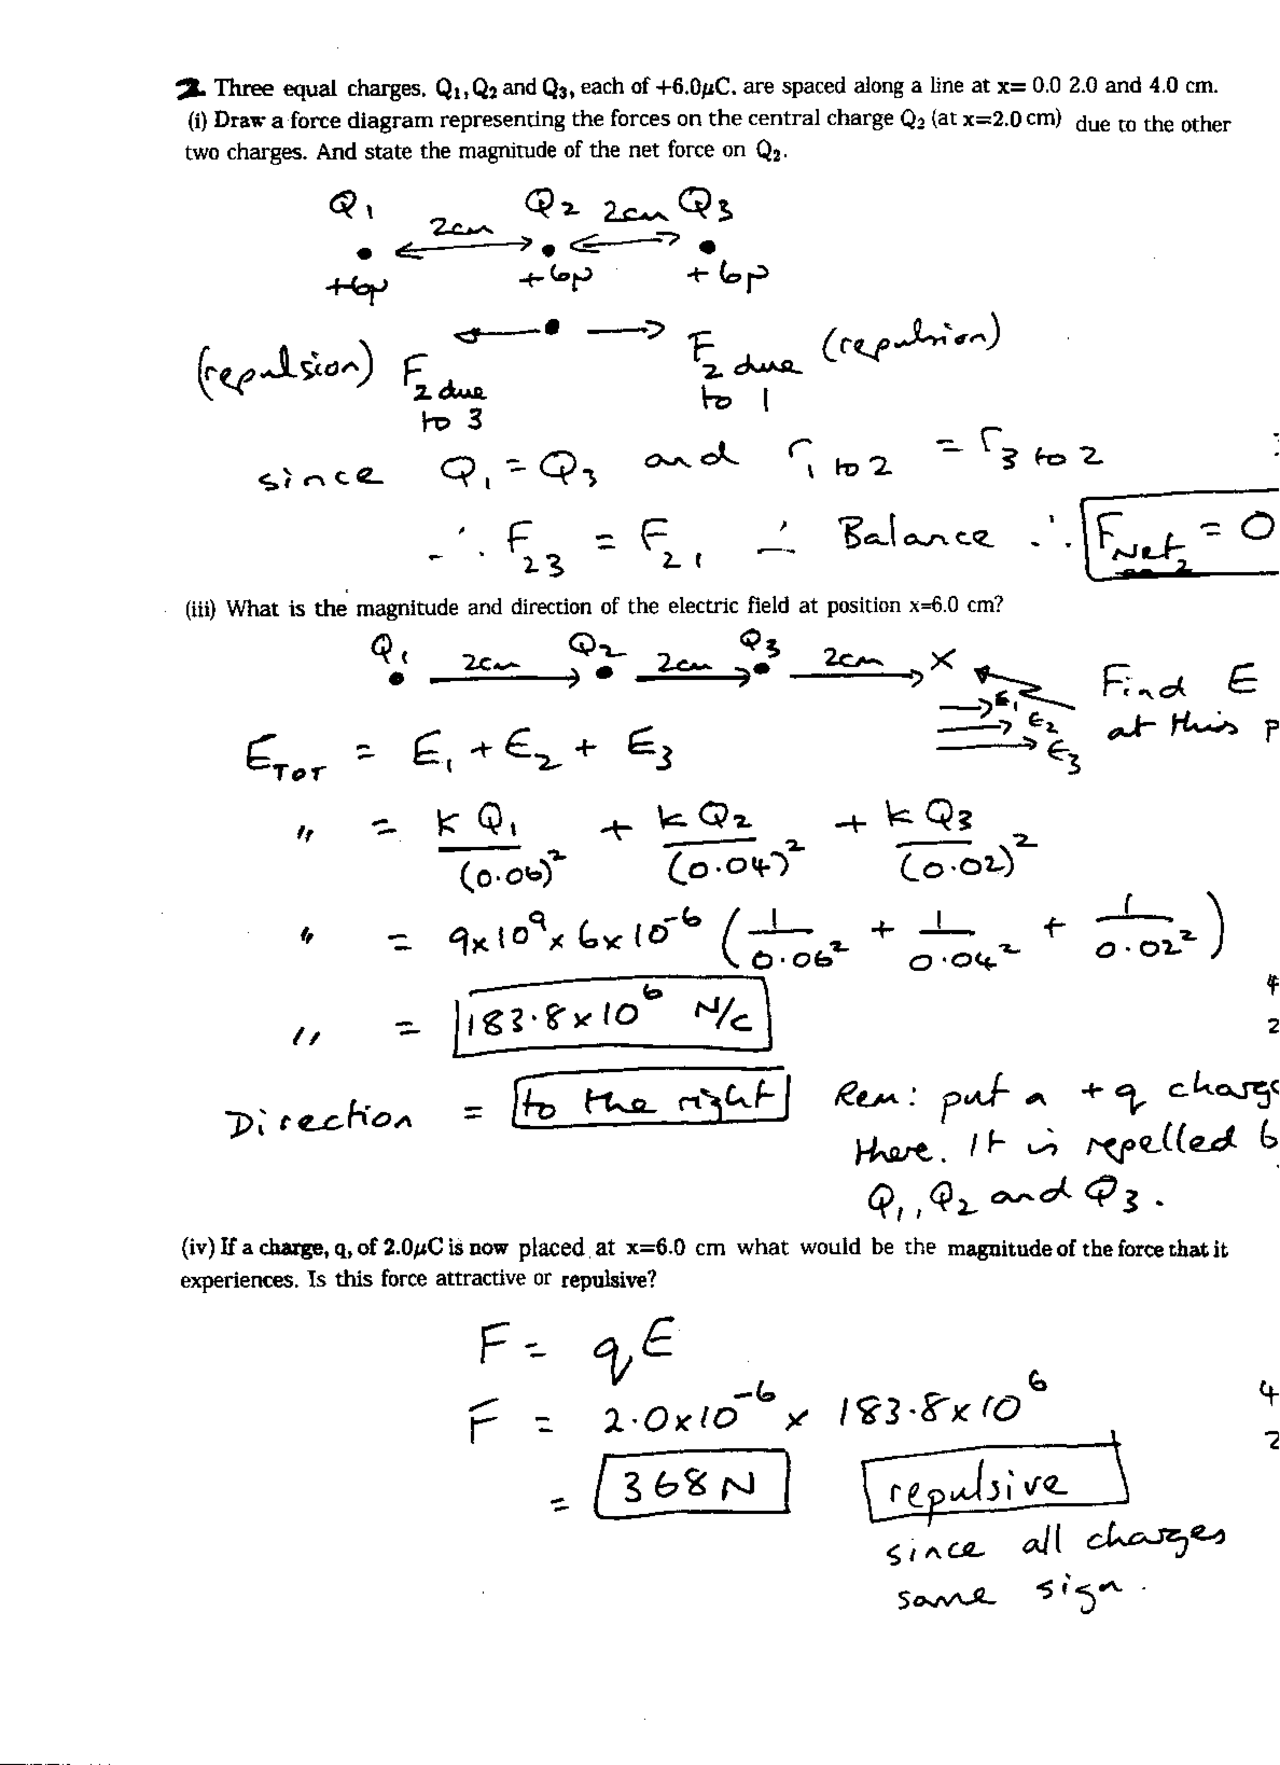 2. Three equal charges, Q₁, Q₂ and Q₃, each of +6.0μC. are spaced along a line at x= 0.0 2.0 and 4.0 cm.
(i) Draw a force diagram representing the forces on the central charge Q₂ (at x=2.0 cm) due to the other
two charges. And state the magnitude of the net force on Q₂.
Q₁ 2cm Q₂ 2cm Q₃
+6μ +6μ +6μ
(repulsion) F₂ due to 3 F₂ due to 1 (repulsion)
since Q₁ = Q₃ and r₁ to 2 = r₃ to 2
∴ F₂₃ = F₂₁ ∴ Balance ∴ F Net₂ = 0
(iii) What is the magnitude and direction of the electric field at position x=6.0 cm?
Q₁ 2cm Q₂ 2cm Q₃ 2cm X
E₁
E₂
E₃
Find E
at this p
E_TOT = E₁ + E₂ + E₃
" = kQ₁/(0.06)² + kQ₂/(0.04)² + kQ₃/(0.02)²
" = 9x10⁹ x 6x10⁻⁶ (1/0.06² + 1/0.04² + 1/0.02²)
" = 183.8x10⁶ N/C
Direction = to the right
Rem: put a +q charge
there. It is repelled b
Q₁, Q₂ and Q₃.
(iv) If a charge, q, of 2.0μC is now placed at x=6.0 cm what would be the magnitude of the force that it
experiences. Is this force attractive or repulsive?
F = qE
F = 2.0x10⁻⁶ x 183.8x10⁶
= 368N repulsive
since all charges
same sign.